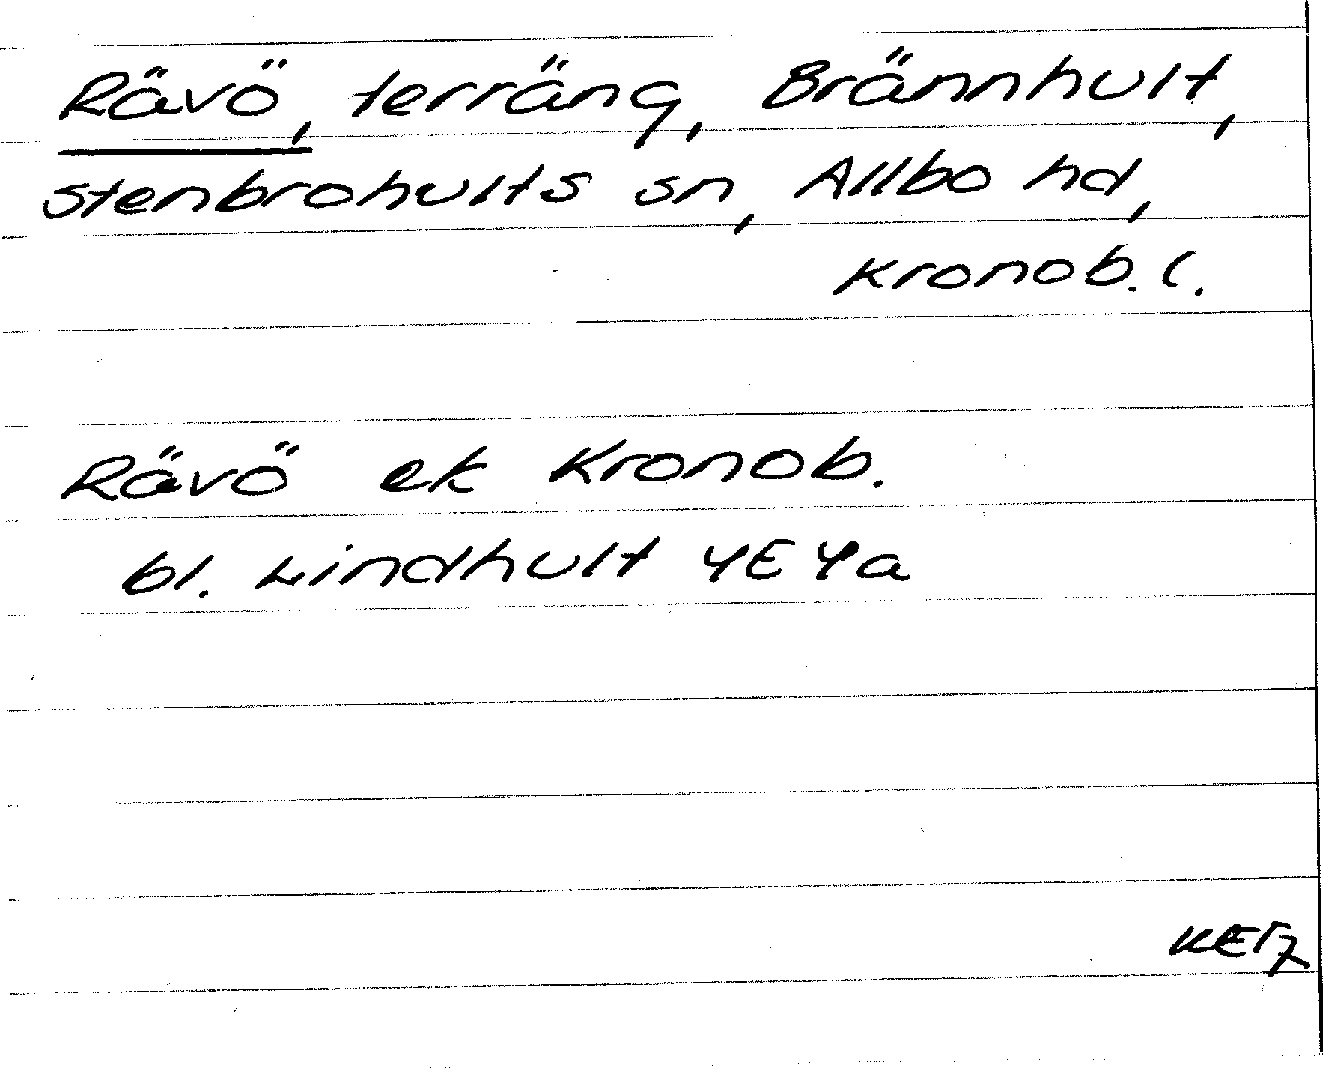 Rävö, terräng, Brännhult,
Stenbrohults sn, Allbo hd,
Kronob. l.
Rävö ek Kronob.
bl. Lindhult 4E 4a